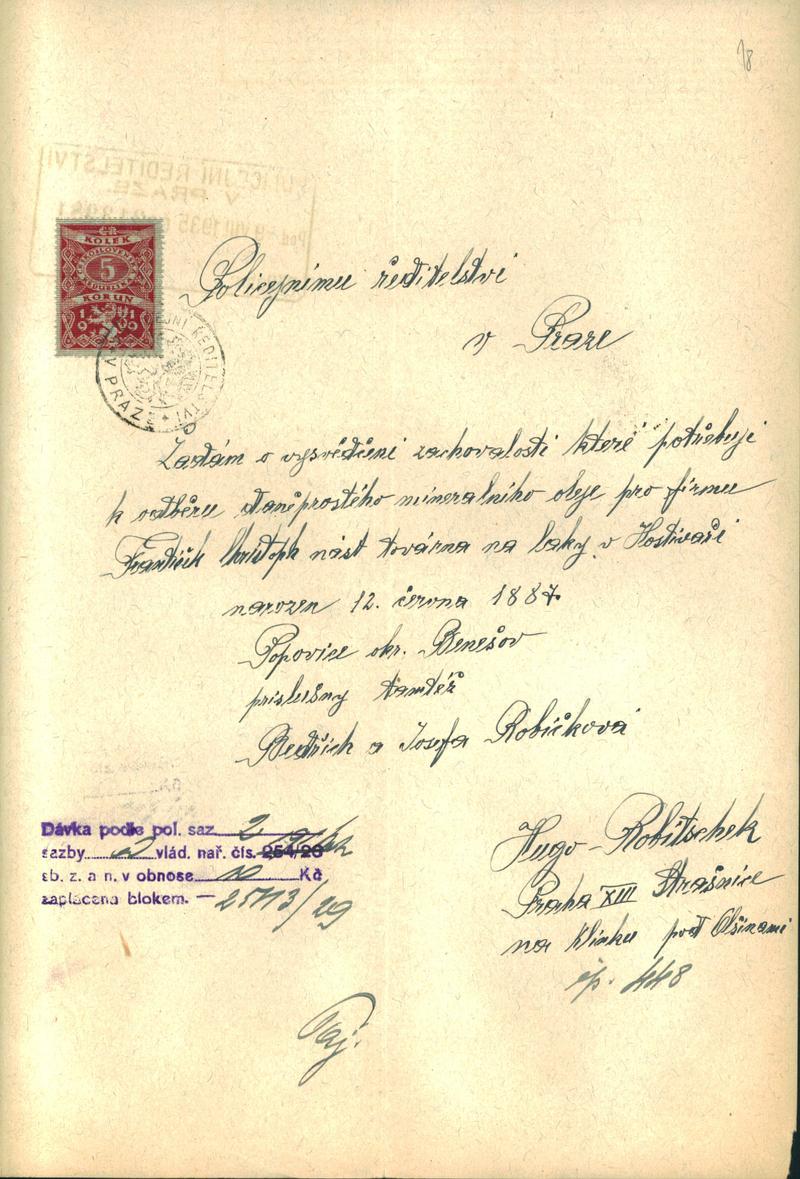 18
POLICEJNÍ ŘEDITELSTVÍ
V PRAZE.
Pod. -9 VIII 1935
KOLEK
5
KORUN
1919
POLICEJNÍ ŘEDITELSTVÍ V PRAZE
Policejnímu ředitelství
v Praze
Žádám o vysvědčení zachovalosti které potřebuji
k odběru daněprostého mineralního oleje pro firmu
František Christoph nást továrna na laky v Hostivaři
narozen 12. června 1887
Popovice okr. Benešov
príslušny tamtéž
Bedřich a Josefa Robičková
Dávka podle pol. saz. 2
sazby 2 vlád. nař. čís. 254/26
sb. z. a n. v obnose 10 Kč
zaplacena blokem. — 2513/29
Hugo Robitschek
Praha XIII Strašnice
na Klínku pod Olšinami
čp. 448